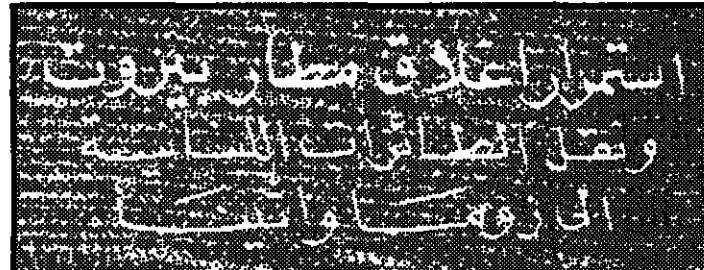 استمرار اغلاق مطار بيروت
ونقل الطائرات اللبنانية
الى روما واثينا